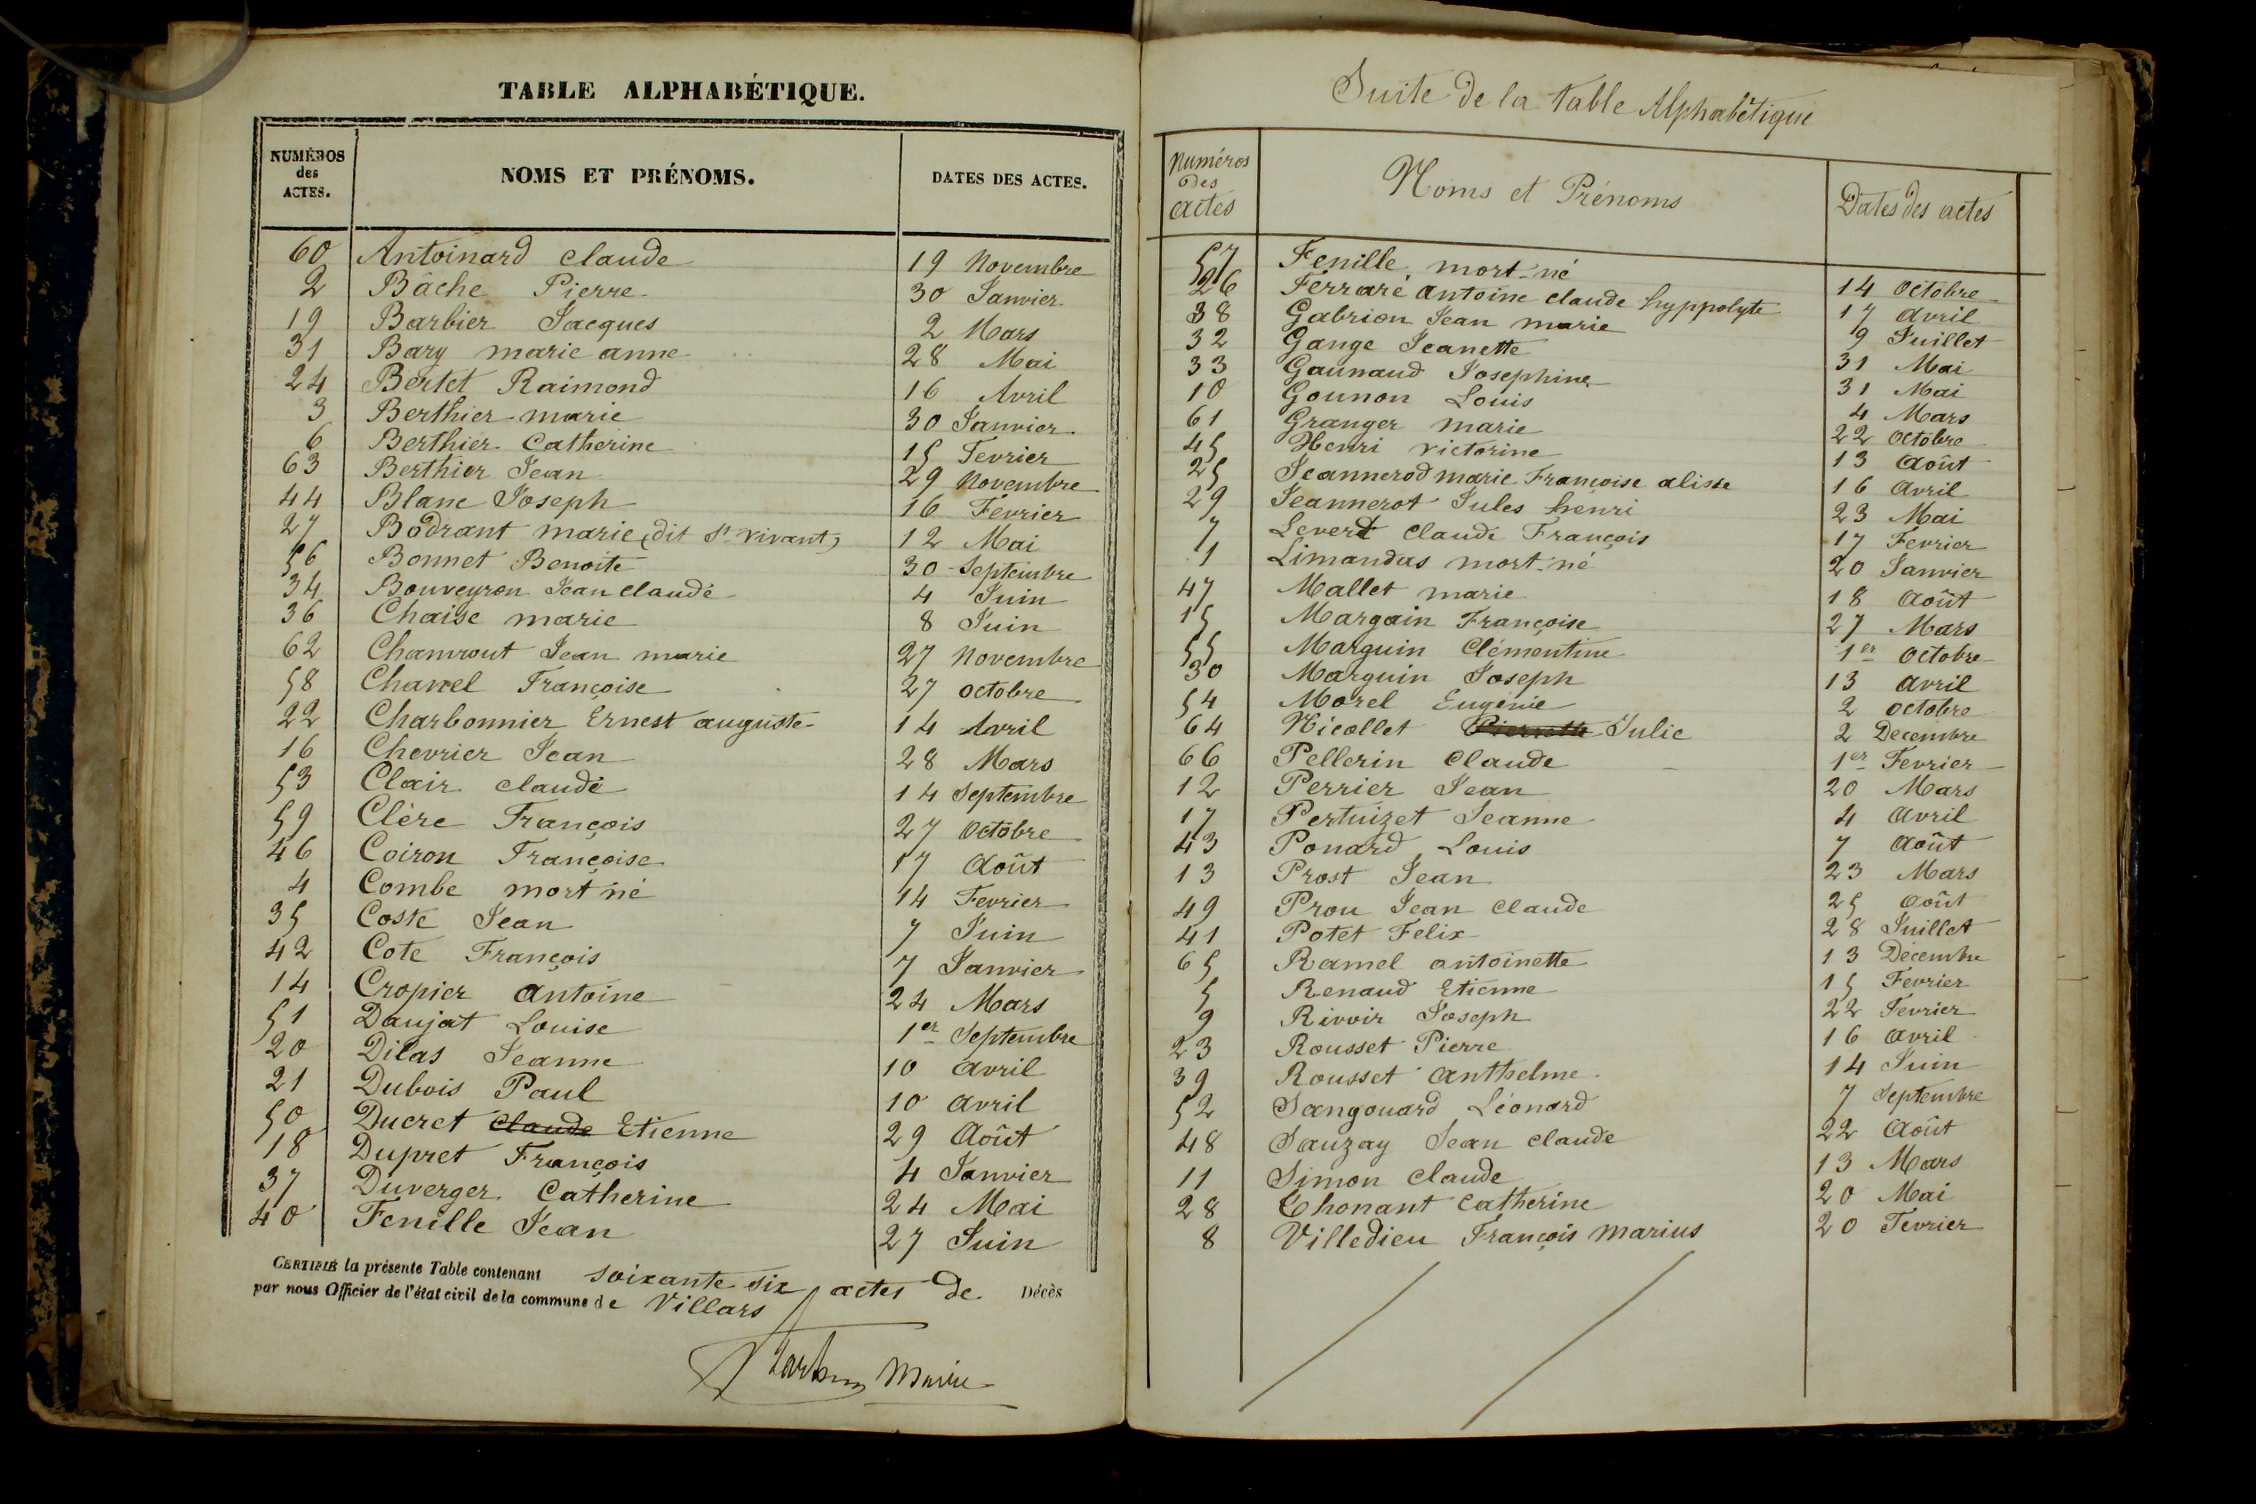 TABLE ALPHABÉTIQUE.
NUMÉROS des ACTES. NOMS ET PRÉNOMS. DATES DES ACTES.
60 Antoinard Claude 19 Novembre
2 Bâche Pierre 30 Janvier
19 Barbier Jacques 2 Mars
31 Bary marie anne 28 Mai
24 Bertet Raimond 16 Avril
3 Berthier marie 30 Janvier
6 Berthier Catherine 15 Fevrier
63 Berthier Jean 29 Novembre
44 Blanc Joseph 16 Février
27 Bodrant marie (dit St Vivant) 12 Mai
56 Bonnet Benoite 30 Septembre
34 Bouveyron Jean Claude 4 Juin
36 Chaise marie 8 Juin
62 Chamrout Jean marie 27 Novembre
58 Chanel Françoise 27 octobre
22 Charbonnier Ernest auguste 14 Avril
16 Chevrier Jean 28 Mars
53 Clair claude 14 Septembre
59 Clère François 27 Octobre
46 Coiron Françoise 17 Août
4 Combe mort né 14 Fevrier
35 Coste Jean 7 Juin
42 Cote François 7 Janvier
14 Cropier Antoine 24 Mars
51 Daujat Louise 1er Septembre
20 Dilas Jeanne 10 Avril
21 Dubois Paul 10 Avril
50 Ducret Claude Etienne 29 Août
18 Dupret François 4 Janvier
37 Duverger Catherine 24 Mai
40 Fenille Jean 27 Juin
CERTIFIÉ la présente Table contenant soixante six actes de Décès
par nous Officier de l'état civil de la commune de Villars
Maire
Suite de la table Alphabétique
Numéros des actes Noms et Prénoms Dates des actes
57 Fenille mort-né 14 Octobre
26 Ferraré Antoine Claude hyppolyte 17 Avril
38 Gabrion Jean marie 9 Juillet
32 Gange Jeanette 31 Mai
33 Gaunaud Josephine 31 Mai
10 Gounon Louis 4 Mars
61 Granger marie 22 Octobre
45 Henri victorine 13 Août
25 Jeannerod marie Françoise alisse 16 Avril
29 Jeannerot Jules henri 23 Mai
7 Levert Claude François 17 Fevrier
1 Limandas mort-né 20 Janvier
47 Mallet marie 18 Août
15 Margain Françoise 27 Mars
55 Marguin Clémentine 1er Octobre
30 Marguin Joseph 13 avril
54 Morel Eugénie 2 octobre
64 Nicollet Pierrette Julie 2 Decembre
66 Pellerin Claude 1er Fevrier
12 Perrier Jean 20 Mars
17 Pertuizet Jeanne 4 Avril
43 Ponard Louis 7 Août
13 Prost Jean 23 Mars
49 Prou Jean Claude 25 Août
41 Potet Felix 28 Juillet
65 Ramel antoinette 13 Décembre
5 Renaud Etienne 15 Fevrier
9 Rivoir Joseph 22 Fevrier
23 Rousset Pierre 16 Avril
39 Rousset Anthelme 14 Juin
52 Sangouard Léonard 7 Septembre
48 Sauzay Jean Claude 22 Août
11 Simon Claude 13 Mars
28 Thonant Catherine 20 Mai
8 Villedieu François Marius 20 Fevrier